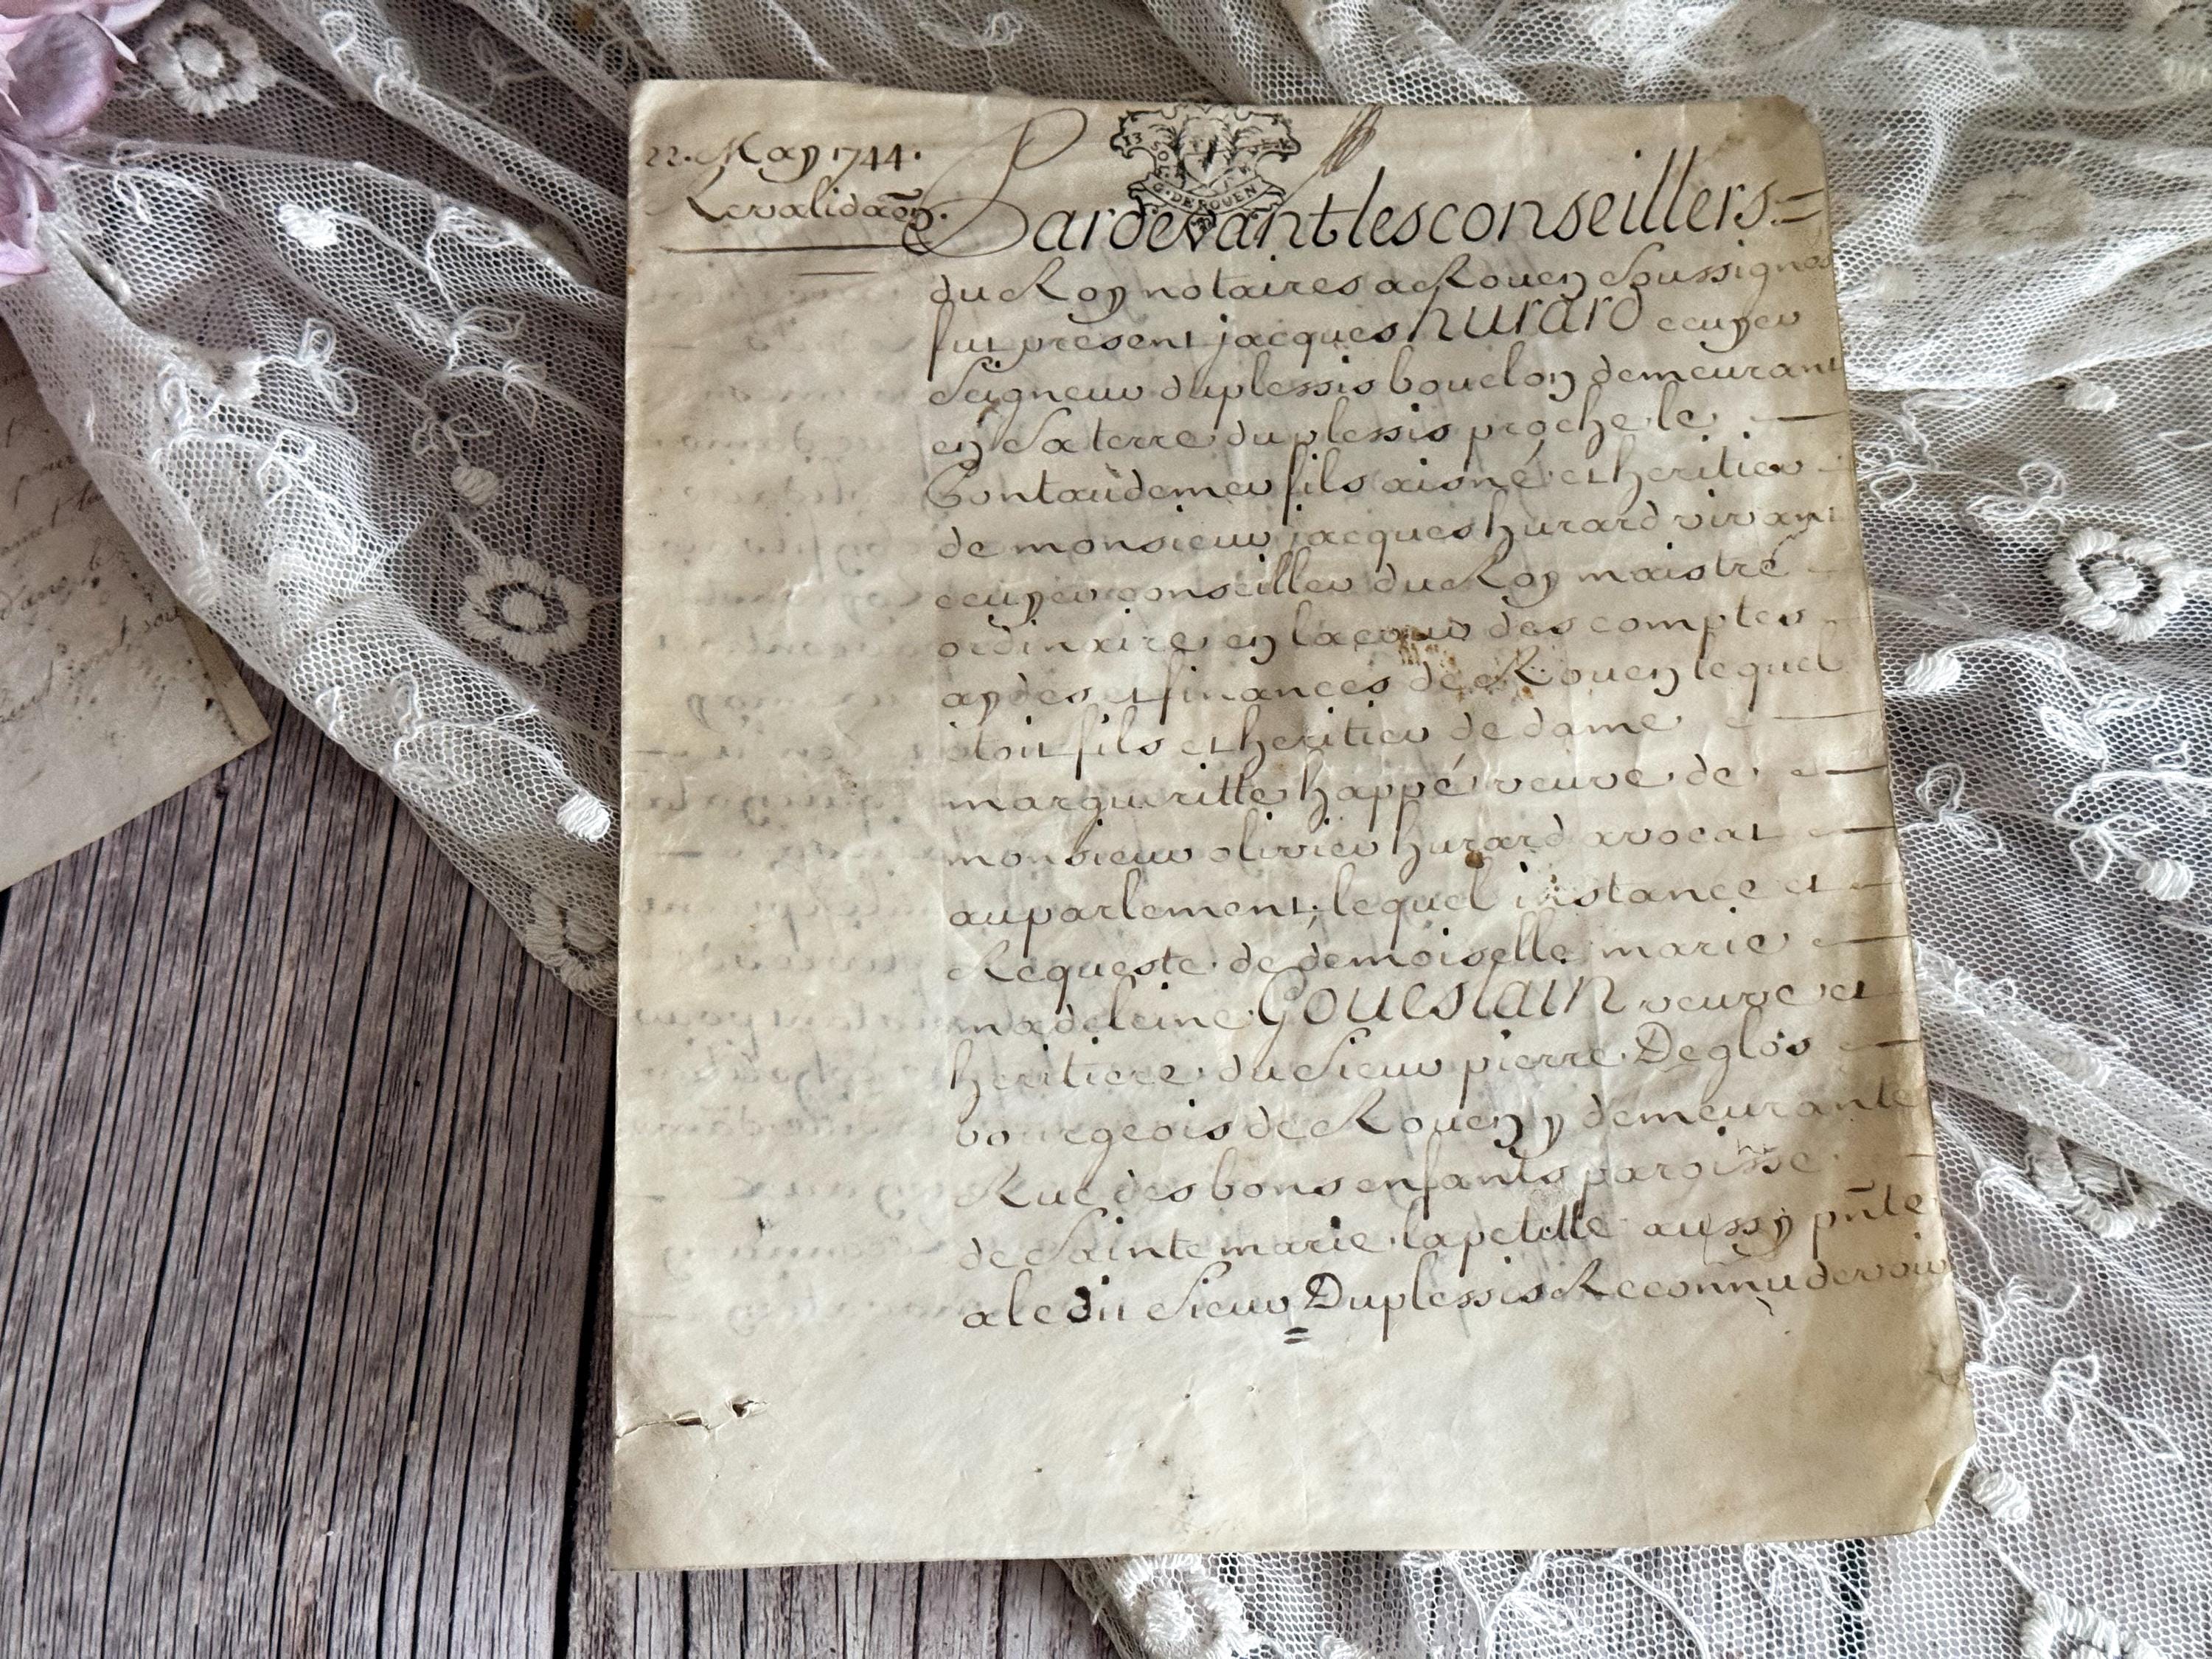 22. May 1744.
Revalidaõn.
G. DE ROUEN
Pardevant les conseillers =
du Roy notaires a Rouen Soussignes
fut present jacques hurard ecuyer
Seigneur duplessis bouelon demeurant
en Sa terre duplessis proche le
Bontaudemer fils aisné et heritier
de monsieur jacques hurard vivant
ecuyer conseiller du Roy maistre
ordinaire en la cour des comptes
aydes et finances de Rouen lequel
etoit fils et heritier de dame
margueritte happé veuve de
monsieur olivier hurard avocat
au parlement; lequel instance et
Requeste de demoiselle marie
madeleine Goueslain veuve et
heritiere du Sieur pierre Deglos
bourgeois de Rouen y demeurante
Rue des bons enfants paroisse
de Sainte marie lapetitte aussy pñte
a ledit Sieur Duplessis Reconnu devoir